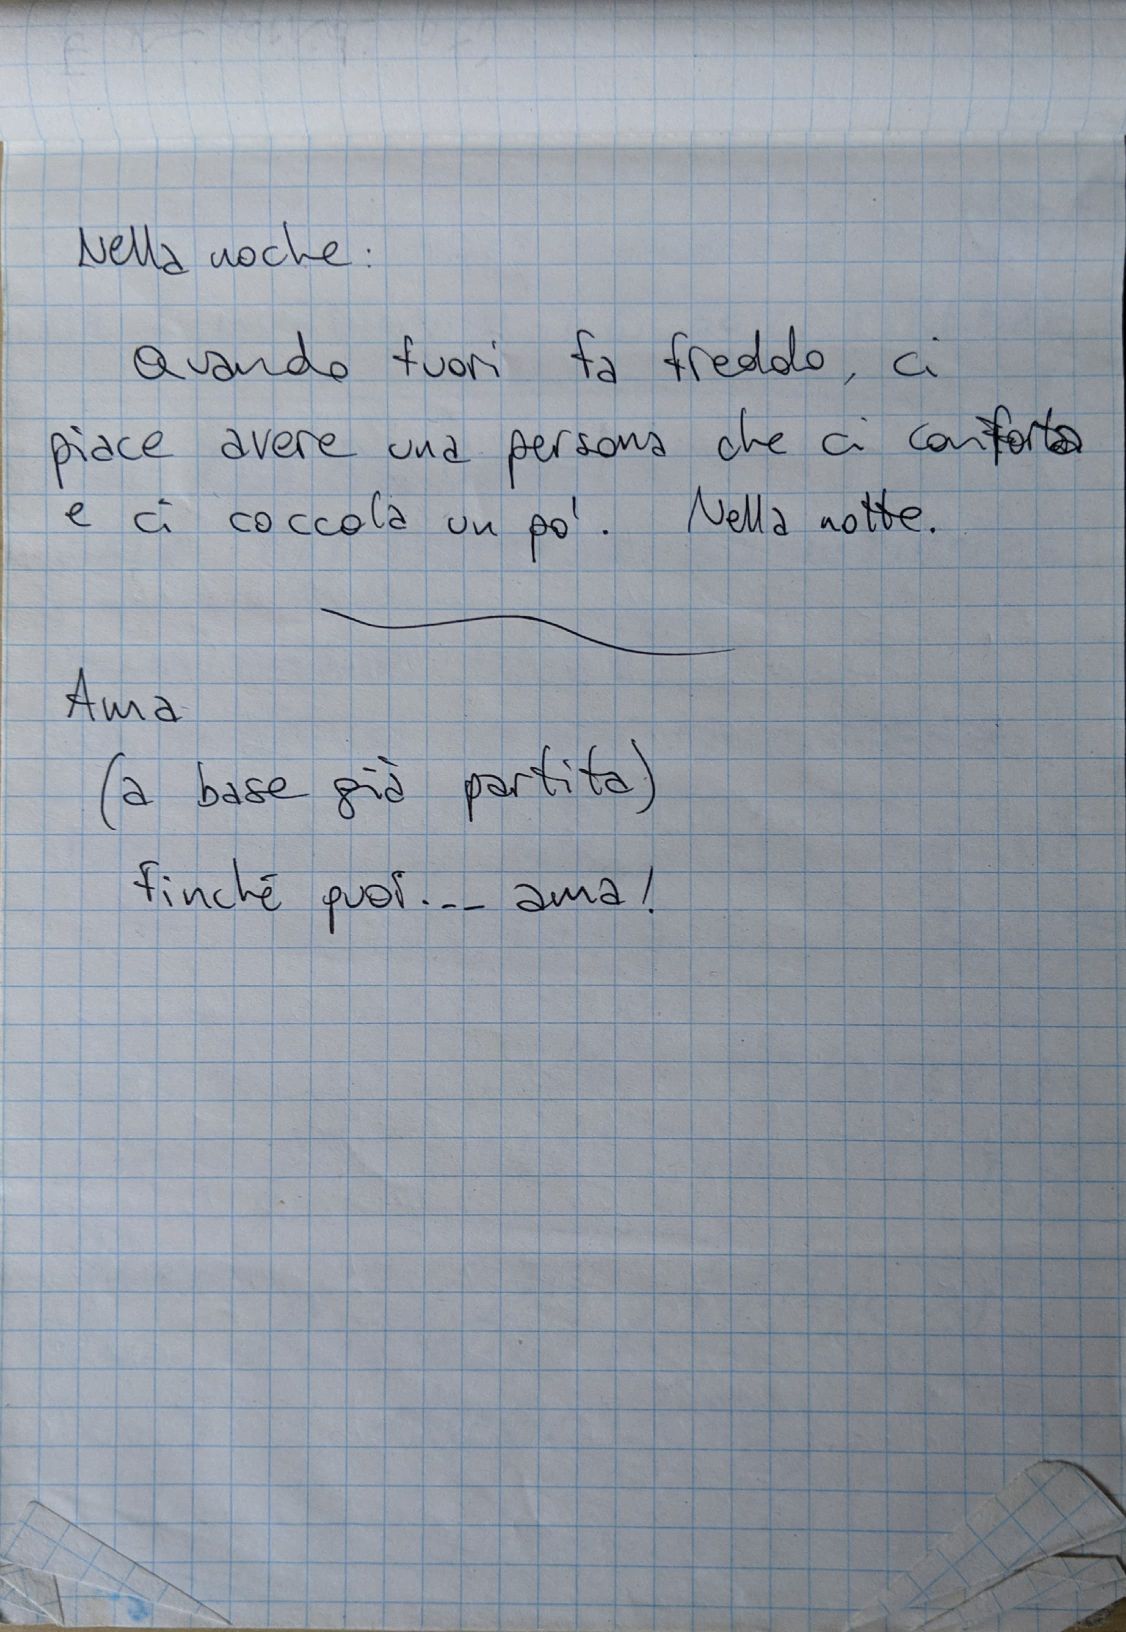 Nella noche:
Quando fuori fa freddo, ci
piace avere una persona che ci conforta
e ci coccola un po'. Nella notte.
Ama
(a base già partita)
Finché puoi... ama!